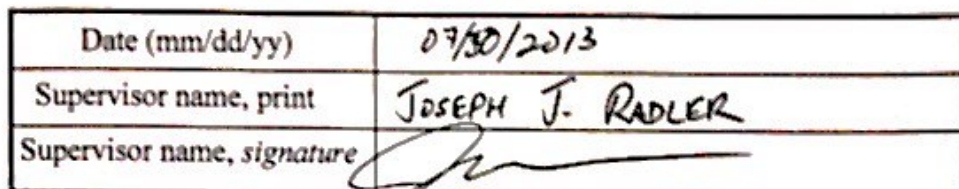 Date (mm/dd/yy) 07/30/2013
Supervisor name, print JOSEPH J. RADLER
Supervisor name, signature